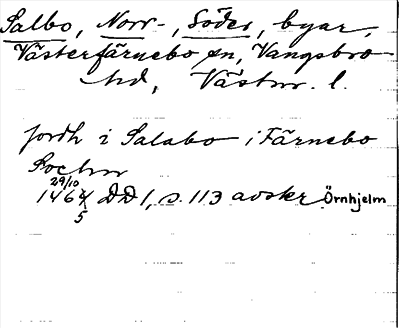 Salbo, Norr-, Söder, byar,
Västerfärnebo sn, Vangsbro
hd, Västm. l.
jordh i Salabo i Färnebo
Sochn
29/10
1464 DD 1, s. 113 avskr Örnhjelm
5